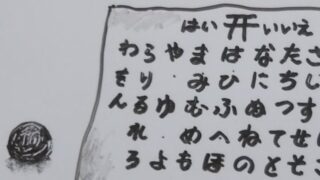 はい いいえ
わらやまはなたさ
をりみひにちし
んるゆむふぬつす
れめへねてせ
ろよもほのとそ